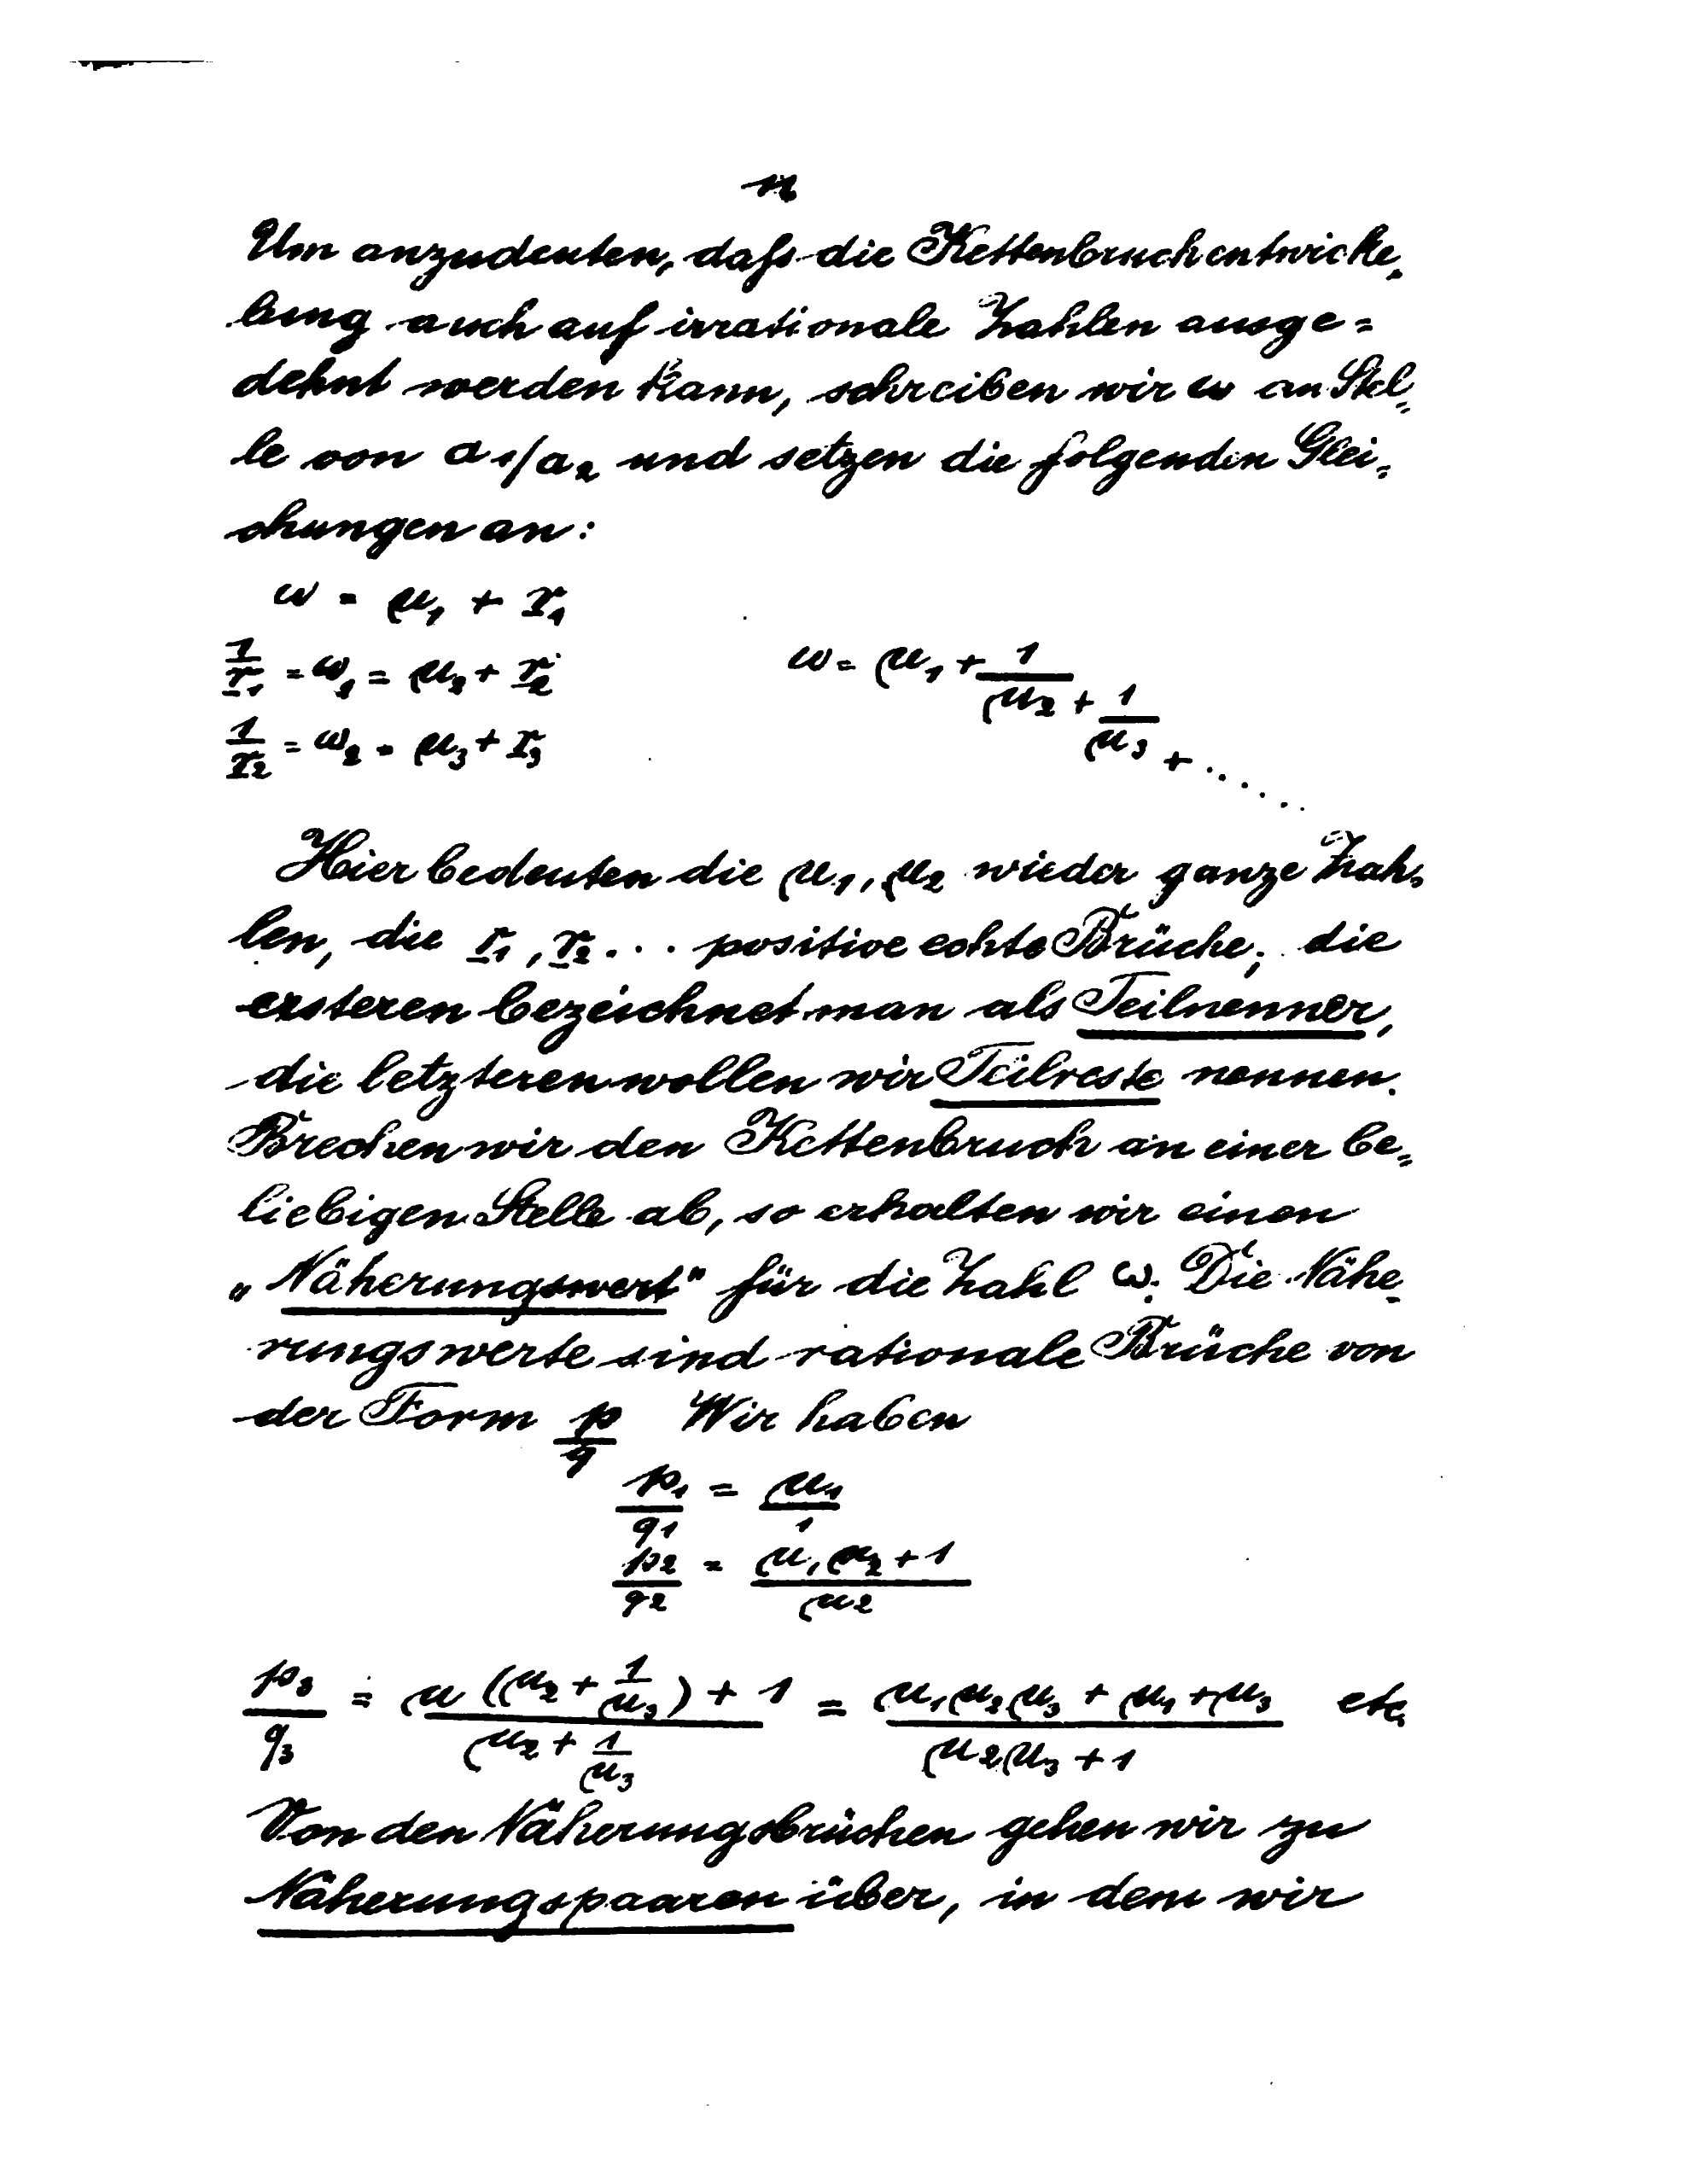 Um anzudeuten, daß die Kettenbruchentwicke-
lung auch auf irrationale Zahlen ausge=
dehnt werden kann, schreiben wir ω an Stel=
le von a₁/a₂ und setzen die folgenden Glei=
chungen an:
ω = μ₁ + r₁
1/r₁ = ω₁ = μ₂ + r₂
ω = μ₁ + 1/(μ₂ + 1/(μ₃ + ......
1/r₂ = ω₂ = μ₃ + r₃
Hier bedeuten die μ₁, μ₂ wieder ganze Zah=
len, die r₁, r₂ ... positive echte Brüche; die
ersteren bezeichnet man als Teilnenner,
die letzteren wollen wir Teilreste nennen.
Brechen wir den Kettenbruch an einer be=
liebigen Stelle ab, so erhalten wir einen
„Näherungswert" für die Zahl ω. Die Nähe-
rungswerte sind rationale Brüche von
der Form p/q Wir haben
p₁/q₁ = μ₁/1
p₂/q₂ = (μ₁μ₂ + 1)/μ₂
p₃/q₃ = (μ(μ₂ + 1/μ₃) + 1)/(μ₂ + 1/μ₃) = (μ₁μ₂μ₃ + μ₁ + μ₃)/(μ₂μ₃ + 1) etc.
Von den Näherungsbrüchen gehen wir zu
Näherungspaaren über, in dem wir